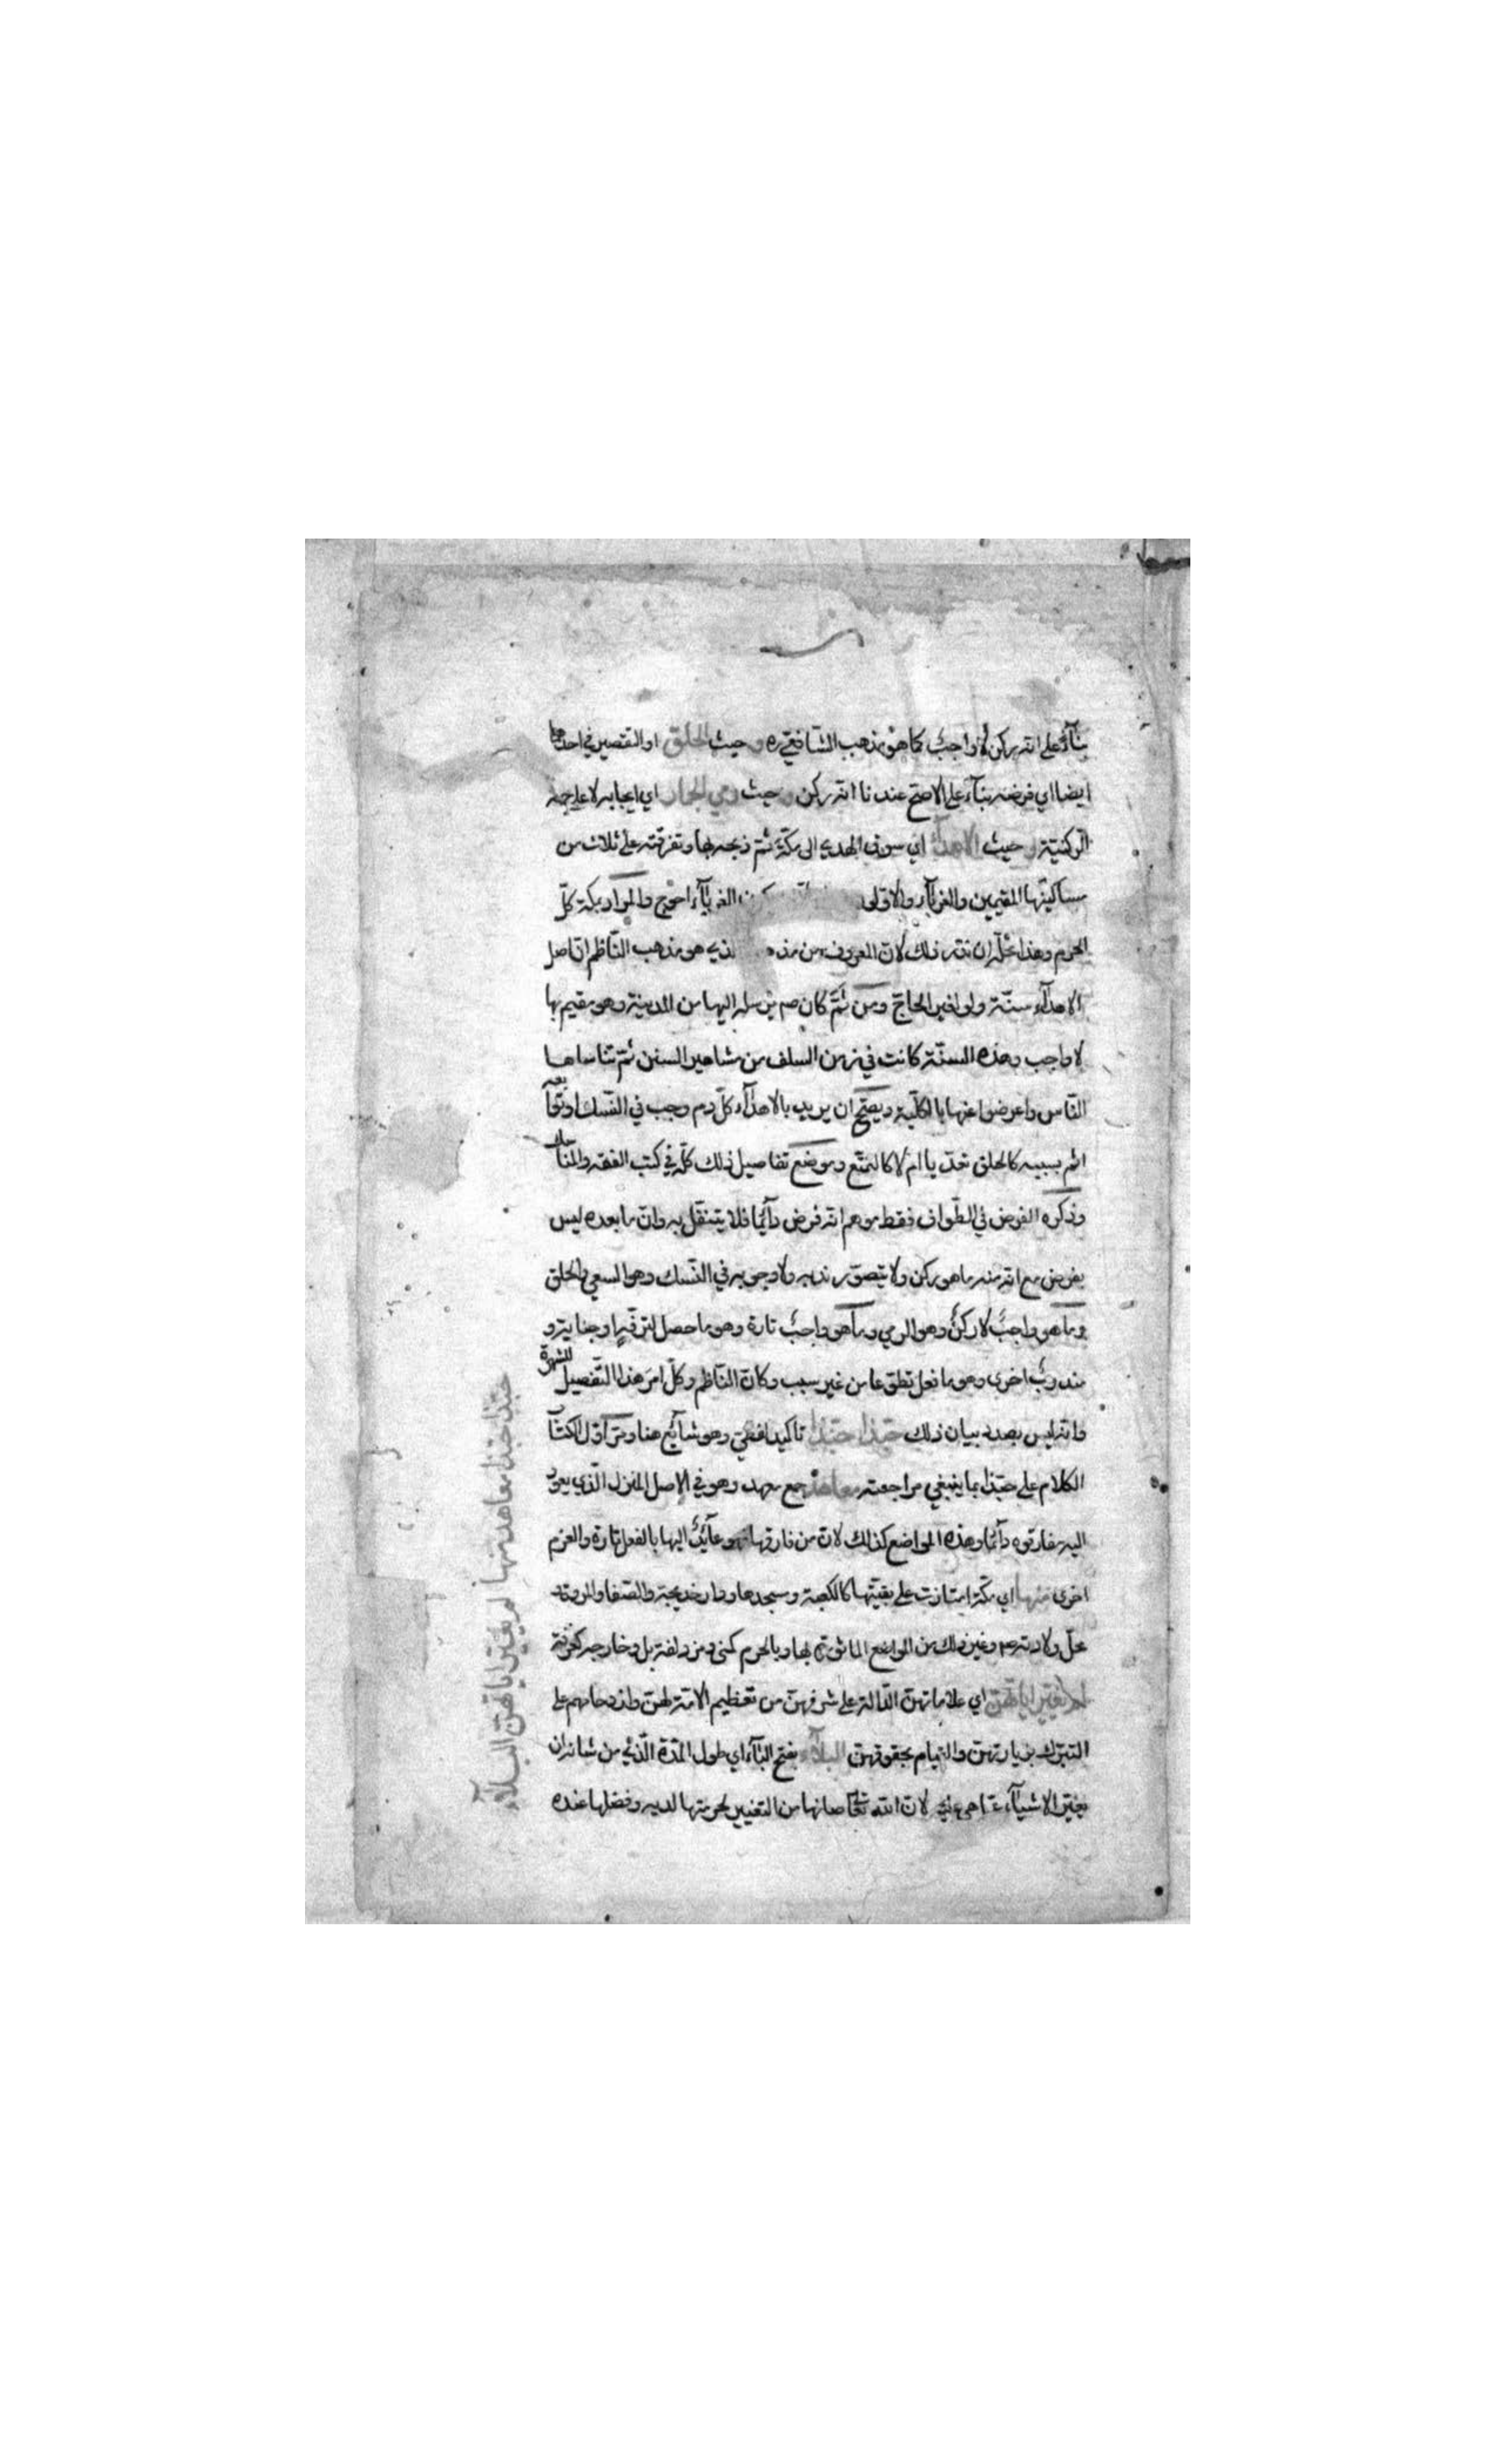 بناءً على انه ركن لا واجبٌ كما هو مذهب الشافعي ره وحيث الحلق او التقصير في احدهما
ايضا اي فرضه بناء على الاصح عندنا انه ركن وحيث رمي الجمار اي ايجابه لا على جهة
الركنية وحيث الاهداء اي سوق الهدي الى مكة ثم ذبحه بها وتفرقته على ثلاث من
مساكينها المقيمين والغرباء والاولى الغرباء احوج والمراد بمكة كلّ
الحرم وهذا محلّه ان نذر ذلك لانّ المعروف من مذه لذي هو مذهب النّاظم انّ اصل
الاهداء سنّة ولو لغير الحاجّ ومن ثمّ كان صم يرسله اليها من المدينة وهو مقيم بها
لا واجب وهذه السنّة كانت في زمن السلف من مشاهير السنن ثمّ تناساها
النّاس واعرضوا عنها بالكلّية ويصحّ ان يريد بالاهداء كلّ دم وجب في النّسك او توابعه
اثم بسببه كالحلق تعدّيا ام لا كالتمتّع وموضع تفاصيل ذلك كلّه في كتب الفقه والمناسك
وذكره الفرض في الطّواف فقط موهم انّه فرض دآئما فلا يتنفّل به وانّ ما بعده ليس
بفرض مع انّه منه ما هو ركن ولا يتصوّر ندبه ولا وجوبه في النّسك وهو السعي والحلق
وما هو واجبٌ لا ركنٌ وهو الرمي وما هو واجبٌ تارة وهو ما حصل لترفّهٍ او جناية و
مندوبٌ اخرى وهو ما فعل تطوّعا من غير سبب وكانّ النّاظم وكلّ امرَ هذا التّفصيل للشهرة
وانه ليس بصدد بيان ذلك حبّذا حبّذا تاكيد لفظيّ وهو شآئع هنا ومرّ اوّل الكتاب
الكلام على حبّذا بما ينبغي مراجعته معاهدٌ جمع معهد وهو في الاصل المنزل الّذي يعود
اليه مفارقوه دآئما وهذه المواضع كذلك لانّ من فارقها فهو عآئدٌ اليها بالفعل تارة والعزم
اخرى منها اي مكّة امتازت على بقيّتها كالكعبة ومسجدها ودار خديجة والصّفا والمروة و
محلّ ولادته عم وغير ذلك من المواضع الماثورة بها وبالحرم كمنى ومزدلفة بل وخارجه كعرفة
لم يغيّر اياتهنّ اي علاماتهنّ الدّالة على شرفهنّ من تعظيم الامّة لهنّ وازدحامهم على
التبرّك بزيارتهنّ والقيام بحقوقهنّ البلآء بفتح البآء اي طول المدّة الّذي من شانه ان
يغيّر الاشيآء عمّا هي عليه لانّ الله تعا صانها من التغيير لحرمتها لديه وفضلها عنده
حبّذا حبّذا معاهد منها لم يغيّر اياتهنّ البلآء